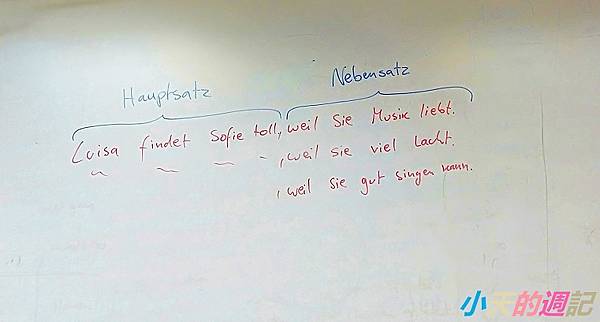 Hauptsatz Nebensatz
Luisa findet Sofie toll, weil Sie Musik liebt.
, weil sie viel lacht.
, weil sie gut singen kann.
小天的週記